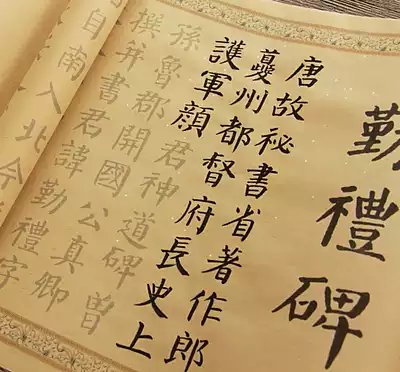 勤禮碑
唐故祕書省著作郎
蘷州都督府長史上
護軍顏君神道碑曾
孫魯郡開國公真卿
撰并書君諱勤禮字
自南入北今